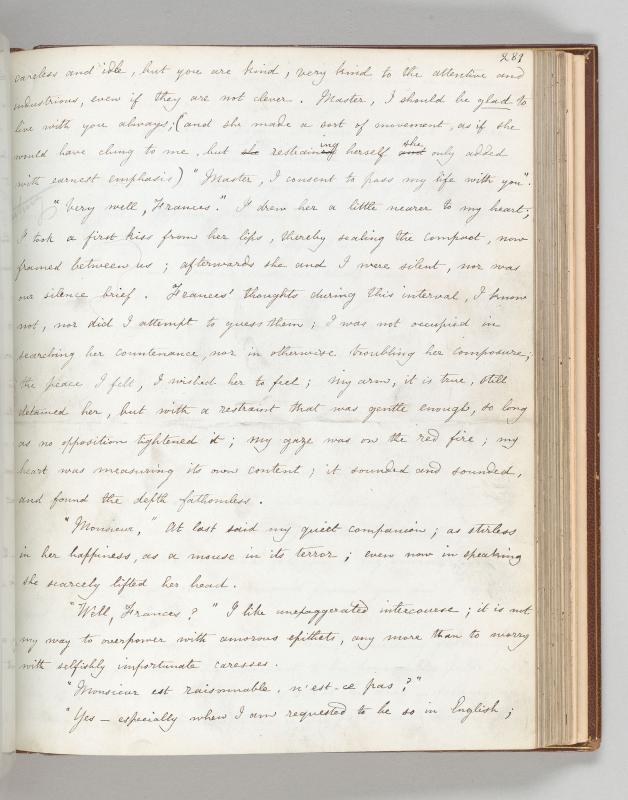 281
careless and idle, but you are kind, very kind to the attentive and
industrious, even if they are not clever. Master, I should be glad to
live with you always; (and she made a sort of movement, as if she
would have clung to me, but she restraining herself and she only added
with earnest emphasis) "Master, I consent to pass my life with you".
"Very well, Frances." I drew her a little nearer to my heart;
I took a first kiss from her lips, thereby sealing the compact, now
framed between us; afterwards she and I were silent, nor was
our silence brief. Frances' thoughts during this interval, I know
not, nor did I attempt to guess them; I was not occupied in
searching her countenance, nor in otherwise troubling her composure;
the peace I felt, I wished her to feel; my arm, it is true, still
detained her, but with a restraint that was gentle enough, so long
as no opposition tightened it; my gaze was on the red fire; my
heart was measuring its own content; it sounded and sounded,
and found the depth fathomless.
"Monsieur," At last said my quiet companion; as stirless
in her happiness, as a mouse in its terror; even now in speaking
she scarcely lifted her head.
"Well, Frances?" I like unexaggerated intercourse; it is not
my way to overpower with amorous epithets, any more than to worry
with selfishly importunate caresses.
"Monsieur est raisonnable, n'est-ce pas?"
"Yes — especially when I am requested to be so in English;